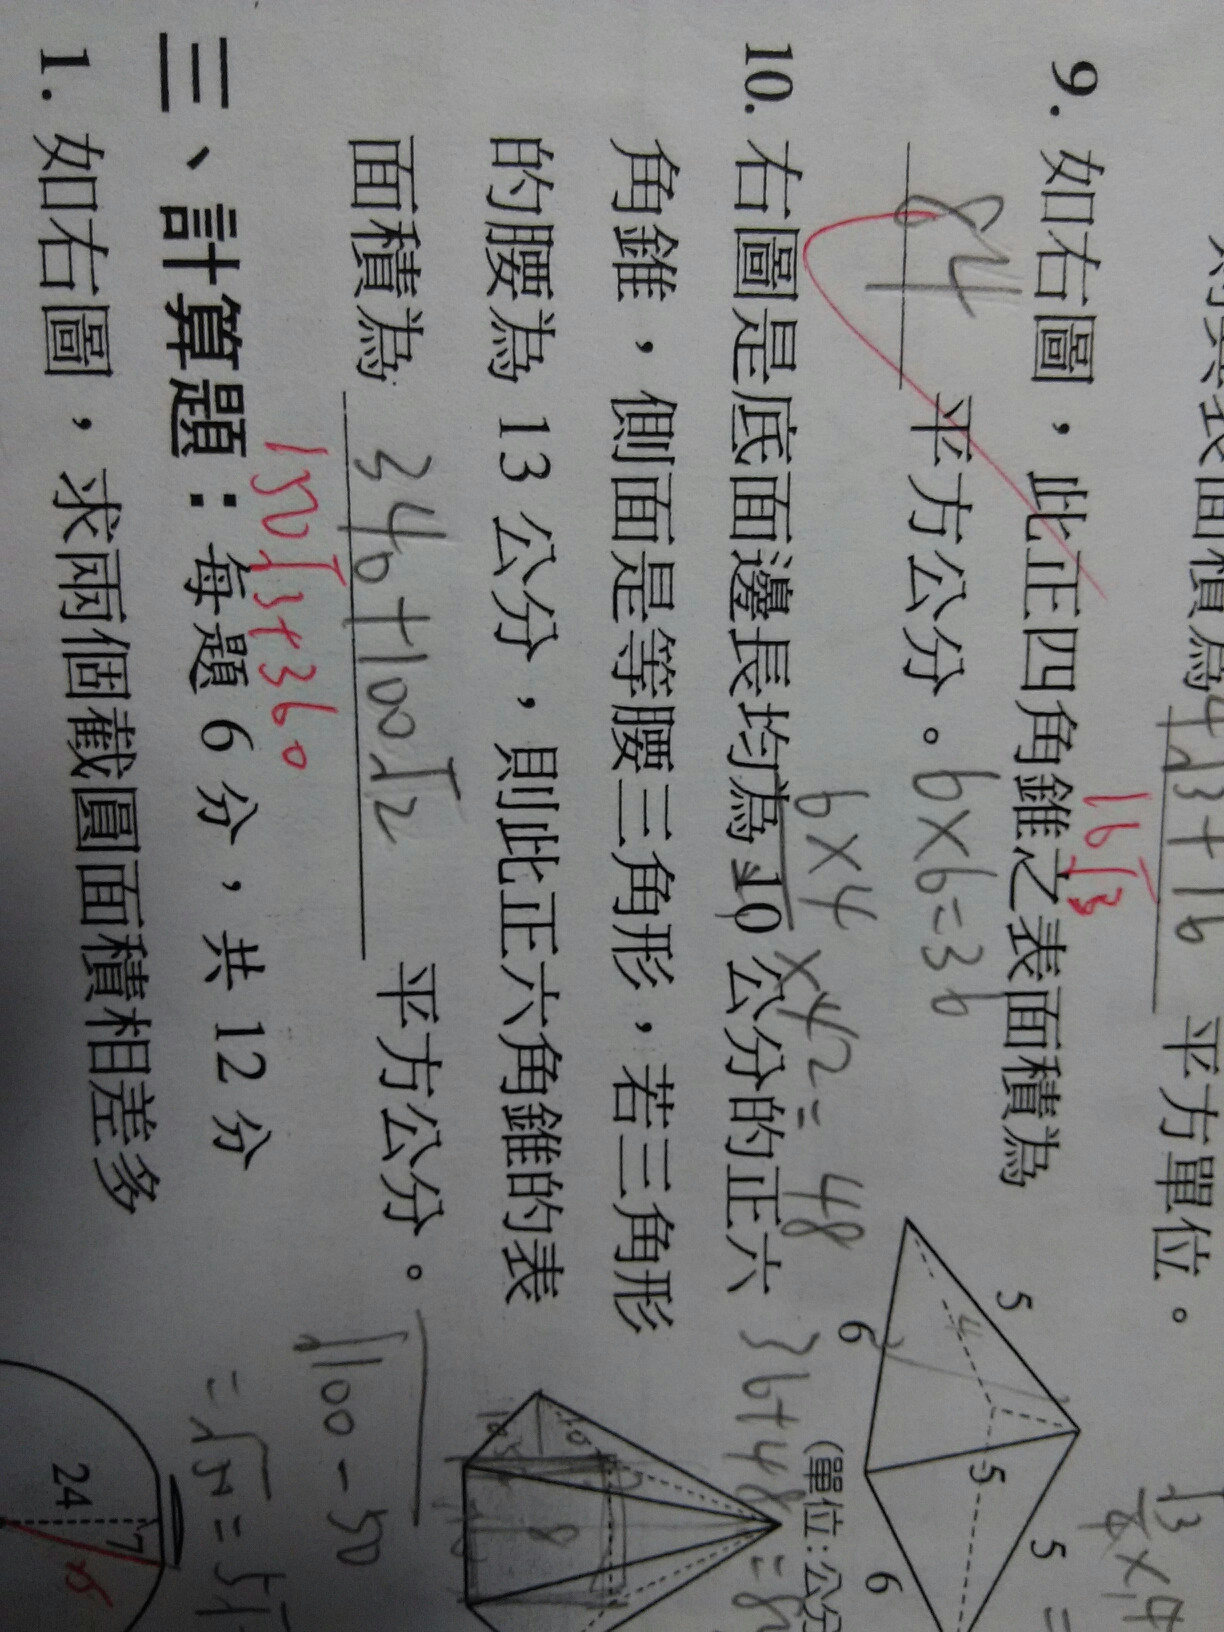 則其表面積為 4√3+16 平方單位。
16√3
9. 如右圖，此正四角錐之表面積為
84 平方公分。 6×6=36
6×4
×4/2= 48
36+48=8
5
4
6
5
5
6
(單位:公分
10. 右圖是底面邊長均為 10 公分的正六
角錐，側面是等腰三角形，若三角形
的腰為 13 公分，則此正六角錐的表
面積為 340+100√2 平方公分。
150√3+360
√100-50
=√50=5√
10
8
三、計算題：每題 6 分，共 12 分
1. 如右圖，求兩個截圓面積相差多
24
7
25